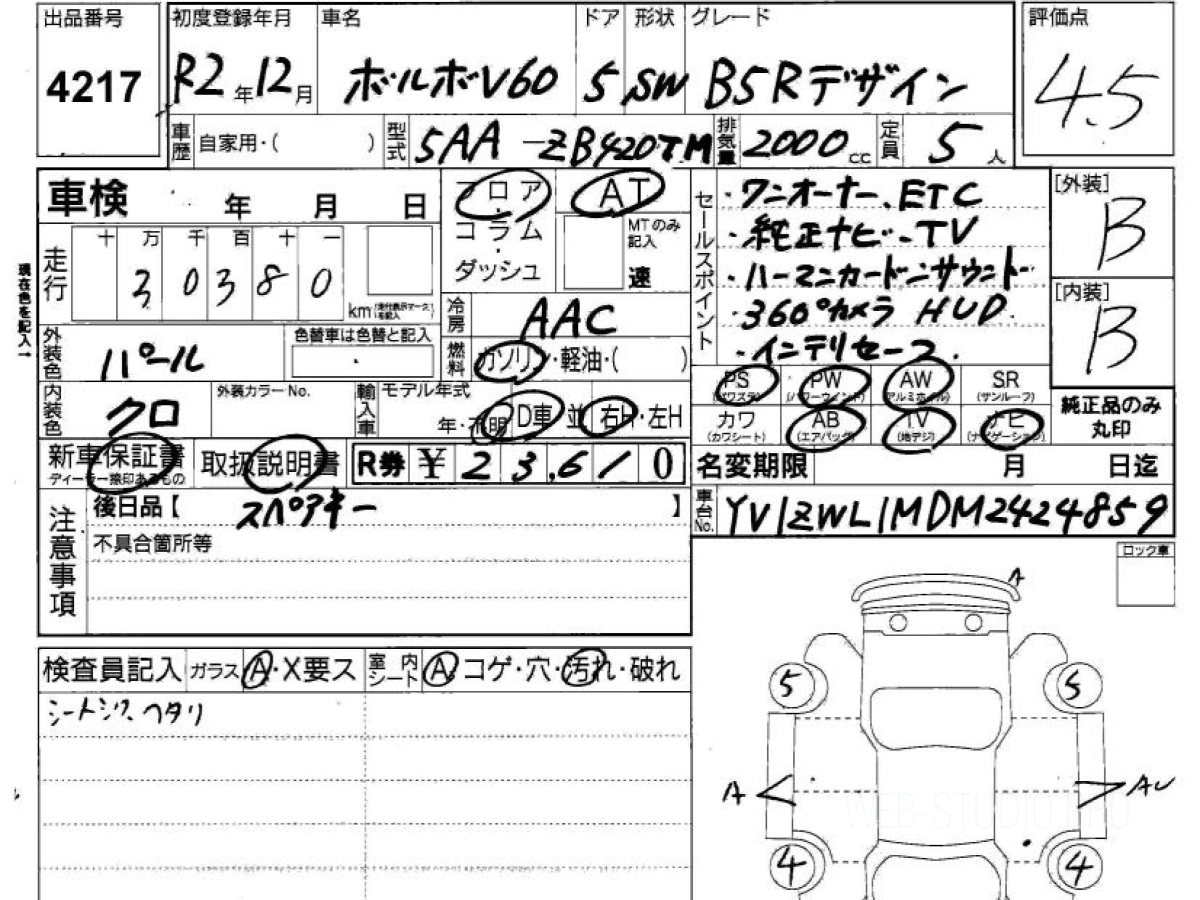 出品番号
4217
初度登録年月 車名 ドア 形状 グレード
R2年12月 ボルボV60 5 SW B5Rデザイン
評価点
4.5
車歴 自家用・( ) 型式 5AA-ZB420TM 排気量 2000cc 定員 5人
車検 年 月 日
現在色を記入→
走行 十 万 千 百 十 一
3 0 3 8 0 km
フロア・コラム・ダッシュ
AT
MTのみ記入
速
冷房 AAC
燃料 ガソリン・軽油・( )
外装色 パール
色替車は色替と記入
内装色 クロ
外装カラーNo.
輸入車 モデル年式
年・不明 D車 並 右H・左H
新車保証書
ディーラー捺印あるもの
取扱説明書
R券 ¥ 23,610
セールスポイント
・ワンオーナー、ETC
・純正ナビ-TV
・ハーマンカードンサウンド
・360°カメラ HUD
・インテリセーフ.
[外装]
B
[内装]
B
PS (パワステ) PW (パワーウインド) AW (アルミホイル) SR (サンルーフ)
カワ (カワシート) AB (エアバック) TV (地デジ) ナビ (ナビゲーション)
純正品のみ
丸印
名変期限 月 日迄
車台No. YV1ZWL1MDM2424859
注意事項
後日品【 スペアキー 】
不具合箇所等
検査員記入 ガラス A・X要ス 室内シート A コゲ・穴・汚れ・破れ
シートシワ、ヘタリ
ロック車
A
5 5
A AU
WEB-STUDIO
4 4